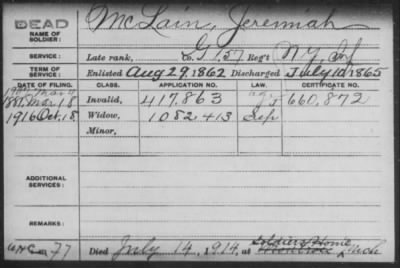 DEAD
NAME OF SOLDIER: McLain, Jeremiah
SERVICE: Late rank, Co. G, 157 Reg't N.Y. Inf
TERM OF SERVICE: Enlisted Aug 29, 1862 Discharged July 10, 1865
DATE OF FILING. CLASS. APPLICATION NO. LAW. CERTIFICATE NO.
1881 Mar 18 Invalid, 417,863 660,872
1916 Oct. 18 Widow, 1082413 Sep
Minor,
ADDITIONAL SERVICES:
REMARKS:
Soldiers Home
77 Died July 14, 1914, at Mich